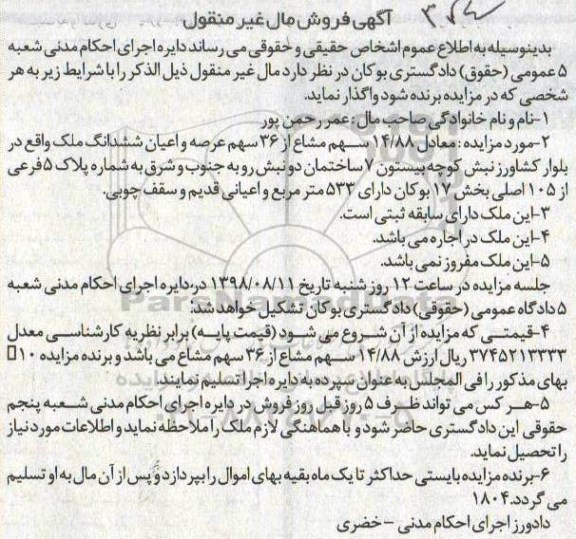 آگهی فروش مال غیر منقول
بدینوسیله به اطلاع عموم اشخاص حقیقی و حقوقی می رساند دایره اجرای احکام مدنی شعبه
۵ عمومی (حقوق) دادگستری بوکان در نظر دارد مال غیر منقول ذیل الذکر را با شرایط زیر به هر
شخصی که در مزایده برنده شود واگذار نماید.
۱-نام و نام خانوادگی صاحب مال : عمر رحمن پور
۲-مورد مزایده : معادل ۱۴/۸۸ سهم مشاع از ۳۶ سهم عرصه و اعیان ششدانگ ملک واقع در
بلوار کشاورز نبش کوچه بیستون ۷ ساختمان دو نبش رو به جنوب و شرق به شماره پلاک ۵ فرعی
از ۱۰۵ اصلی بخش ۱۷ بوکان دارای ۵۳۳ متر مربع و اعیانی قدیم و سقف چوبی.
۳-این ملک دارای سابقه ثبتی است.
۴-این ملک در اجاره می باشد.
۵-این ملک مفروز نمی باشد.
جلسه مزایده در ساعت ۱۲ روز شنبه تاریخ ۱۳۹۸/۰۸/۱۱ در دایره اجرای احکام مدنی شعبه
۵ دادگاه عمومی (حقوقی) دادگستری بوکان تشکیل خواهد شد:
۴-قیمتی که مزایده از آن شروع می شود (قیمت پایه) برابر نظریه کارشناسی معدل
۳۷۴۵۲۱۳۳۳۳ ریال ارزش ۱۴/۸۸ سهم مشاع از ۳۶ سهم مشاع می باشد و برنده مزایده ۱۰
بهای مذکور را فی المجلس به عنوان سپرده به دایره اجرا تسلیم نمایند.
۵-هر کس می تواند ظرف ۵ روز قبل روز فروش در دایره اجرای احکام مدنی شعبه پنجم
حقوقی این دادگستری حاضر شود و با هماهنگی لازم ملک را ملاحظه نماید و اطلاعات مورد نیاز
را تحصیل نماید.
۶-برنده مزایده بایستی حداکثر تا یک ماه بقیه بهای اموال را بپردازد و پس از آن مال به او تسلیم
می گردد. ۱۸۰۴
دادورز اجرای احکام مدنی - خضری
ParsNamadData